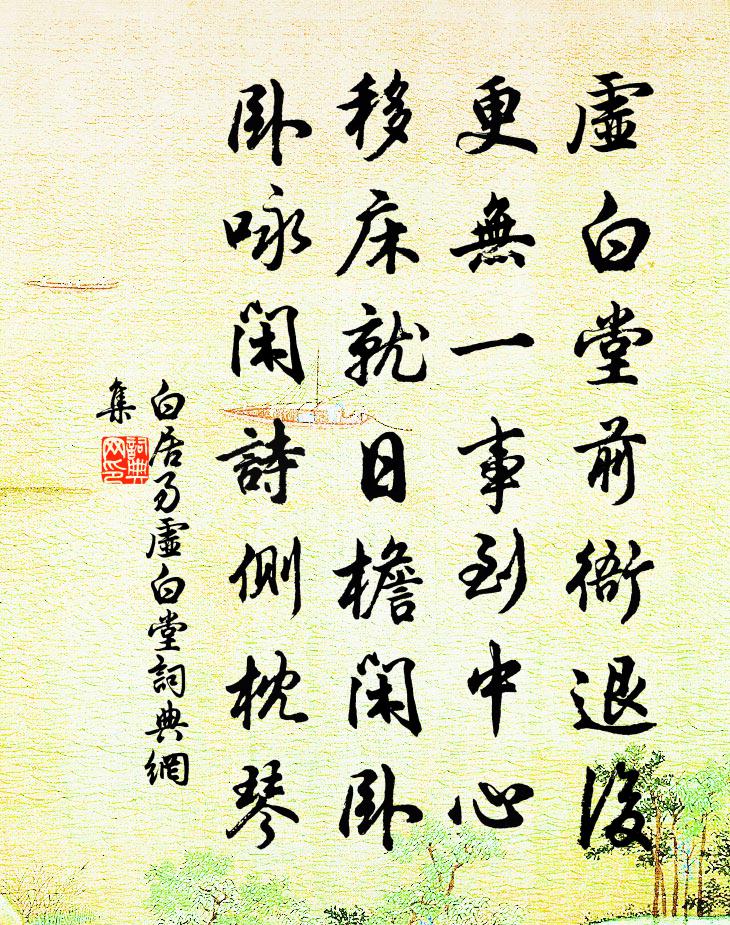 虛白堂前衙退後
更無一事到中心
移床就日檐閑臥
臥咏閑詩側枕琴
白居易虛白堂詞典網
集
詞典
网印